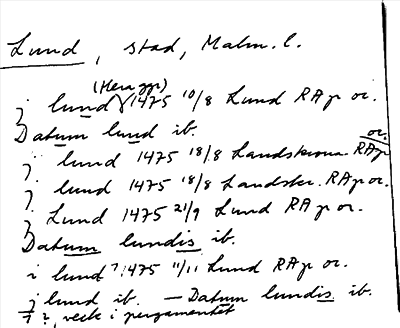 Lund, stad, Malm. l.
(flera ggr)
j lund 1475 10/8 Lund RAp or.
Datum lund ib.
j lund 1475 18/8 Landskrona RAp or.
j lund 1475 18/8 Landskr. RAp or.
j Lund 1475 21/9 Lund RAp or.
Datum lundis ib.
i lund ? 1475 11/11 Lund RAp or.
j lund ib. — Datum lundis ib.
? veck i pergamentet